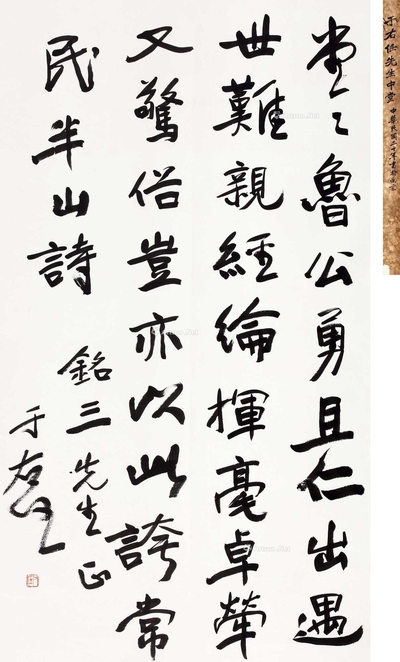 于右任先生中堂
中華民國二十年
堂々魯公勇且仁出遇
世難親經綸揮毫卓犖
又驚俗豈亦以此誇常
民半山詩
銘三先生正
于右任